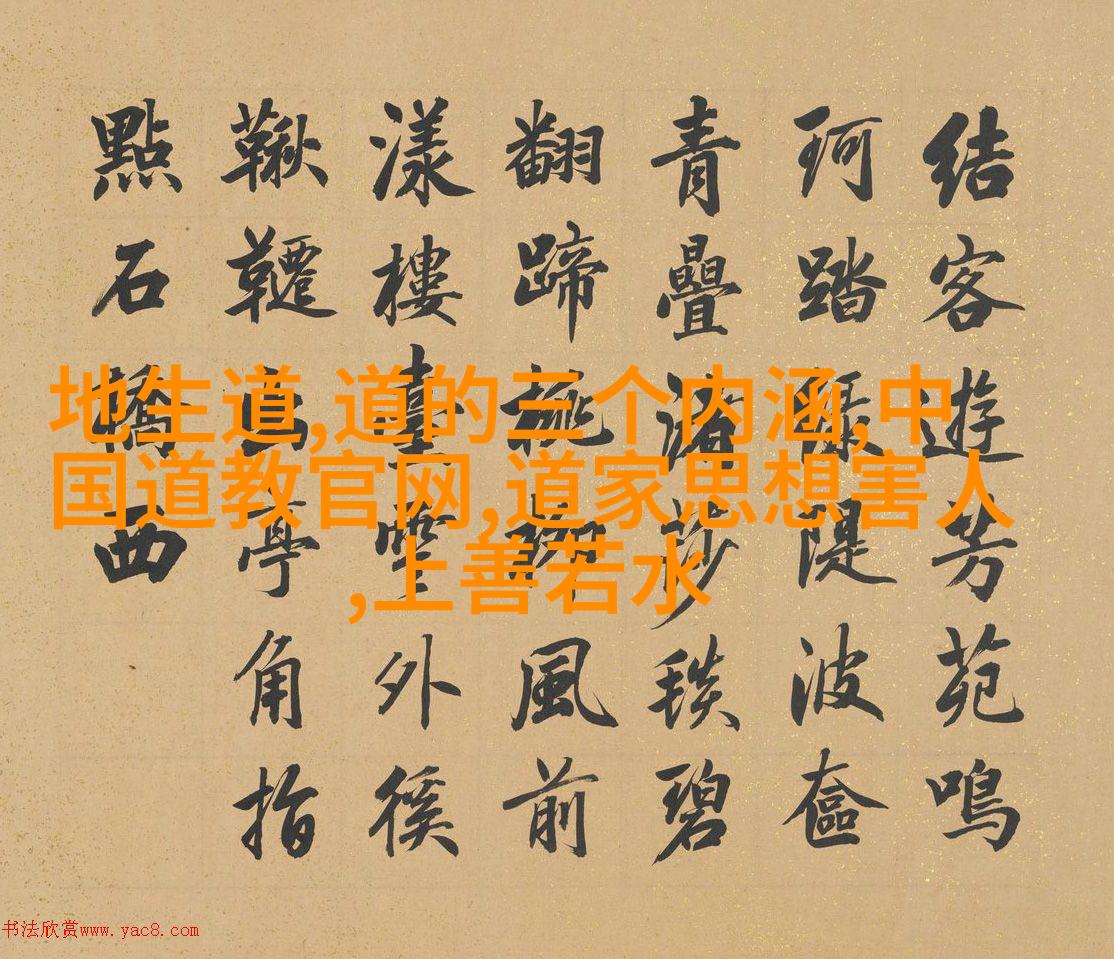 結客遊芳苑鳴
珂踏隄波奩
青疊渚莎毯碧
翻蹄風前
漾樓臺外徯
鞦韆亭角指
點石橋西
地生道,道的三个内涵,中
国道教官网,道家思想害人
,上善若水
书法欣赏www.yac8.com